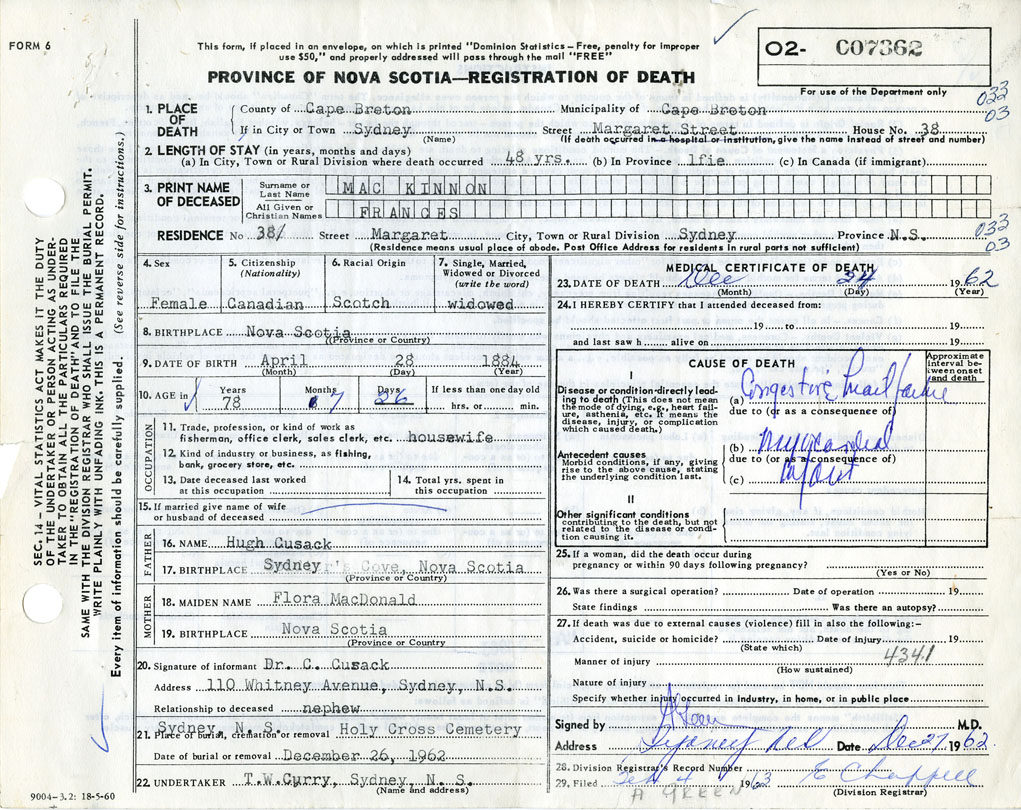 FORM 6
This form, if placed in an envelope, on which is printed "Dominion Statistics – Free, penalty for improper
use $50," and properly addressed will pass through the mail "FREE"
O2- C07362
For use of the Department only
PROVINCE OF NOVA SCOTIA—REGISTRATION OF DEATH
033
03
1. PLACE OF DEATH
County of Cape Breton Municipality of Cape Breton
If in City or Town Sydney Street Margaret Street House No. 38
(Name) (If death occured in a hospital or institution, give the name instead of street and number)
2. LENGTH OF STAY (in years, months and days)
(a) In City, Town or Rural Division where death occurred 48 yrs. (b) In Province lfie (c) In Canada (if immigrant)
3. PRINT NAME OF DECEASED
Surname or Last Name MAC KINNON
All Given or Christian Names FRANCES
RESIDENCE No 38 Street Margaret City, Town or Rural Division Sydney Province N.S.
(Residence means usual place of abode. Post Office Address for residents in rural parts not sufficient)
033
03
4. Sex Female
5. Citizenship (Nationality) Canadian
6. Racial Origin Scotch
7. Single, Married, Widowed or Divorced (write the word) widowed
8. BIRTHPLACE Nova Scotia
(Province or Country)
9. DATE OF BIRTH April 28 1884
(Month) (Day) (Year)
10. AGE in Years 78 Months 7 Days 26 If less than one day old
hrs. or min.
OCCUPATION
11. Trade, profession, or kind of work as
fisherman, office clerk, sales clerk, etc. housewife
12. Kind of industry or business, as fishing,
bank, grocery store, etc.
13. Date deceased last worked at this occupation
14. Total yrs. spent in this occupation
15. If married give name of wife
or husband of deceased
FATHER
16. NAME Hugh Cusack
17. BIRTHPLACE Sydney r's Cove, Nova Scotia
(Province or Country)
MOTHER
18. MAIDEN NAME Flora MacDonald
19. BIRTHPLACE Nova Scotia
(Province or Country
20. Signature of informant Dr. C. Cusack
Address 110 Whitney Avenue, Sydney, N.S.
Relationship to deceased nephew
Sydney, N. S.
21. Place of burial, cremation or removal Holy Cross Cemetery
Date of burial or removal December 26, 1962
22. UNDERTAKER T.W.Curry, Sydney, N. S.
(Name and address)
MEDICAL CERTIFICATE OF DEATH
23. DATE OF DEATH Dec 24 1962
(Month) (Day) (Year)
24. I HEREBY CERTIFY that I attended deceased from:
19 to 19
and last saw h alive on 19
CAUSE OF DEATH
Approximate interval between onset and death
I
Disease or condition directly leading to death (This does not mean the mode of dying, e.g., heart failure, asthenia, etc. It means the disease, injury, or complication which caused death.)
(a) Congestive heart failure
due to (or as a consequence of)
Antecedent causes
Morbid conditions, if any, giving rise to the above cause, stating the underlying condition last.
(b) Myocardial
due to (or as a consequence of)
(c) infarct
II
Other significant conditions
contributing to the death, but not related to the disease or condition causing it.
25. If a woman, did the death occur during
pregnancy or within 90 days following pregnancy?
(Yes or No)
26. Was there a surgical operation? Date of operation 19
State findings Was there an autopsy?
27. If death was due to external causes (violence) fill in also the following:–
Accident, suicide or homicide? Date of injury 19
(State which)
4341
Manner of injury
(How sustained)
Nature of injury
Specify whether injury occurred in industry, in home, or in public place
Signed by M.D.
Address Sydney Date Dec 27 1962
28. Division Registrar's Record Number
29. Filed Sept 4 1963 E Chappell
A GREEN (Division Registrar)
SEC. 14 – VITAL STATISTICS ACT MAKES IT THE DUTY
OF THE UNDERTAKER OR PERSON ACTING AS UNDER-
TAKER TO OBTAIN ALL THE PARTICULARS REQUIRED
IN THE "REGISTRATION OF DEATH" AND TO FILE THE
SAME WITH THE DIVISION REGISTRAR WHO SHALL ISSUE THE BURIAL PERMIT.
WRITE PLAINLY WITH UNFADING INK. THIS IS A PERMANENT RECORD.
Every item of information should be carefully supplied. (See reverse side for instructions.)
9004-3.2: 18-5-60